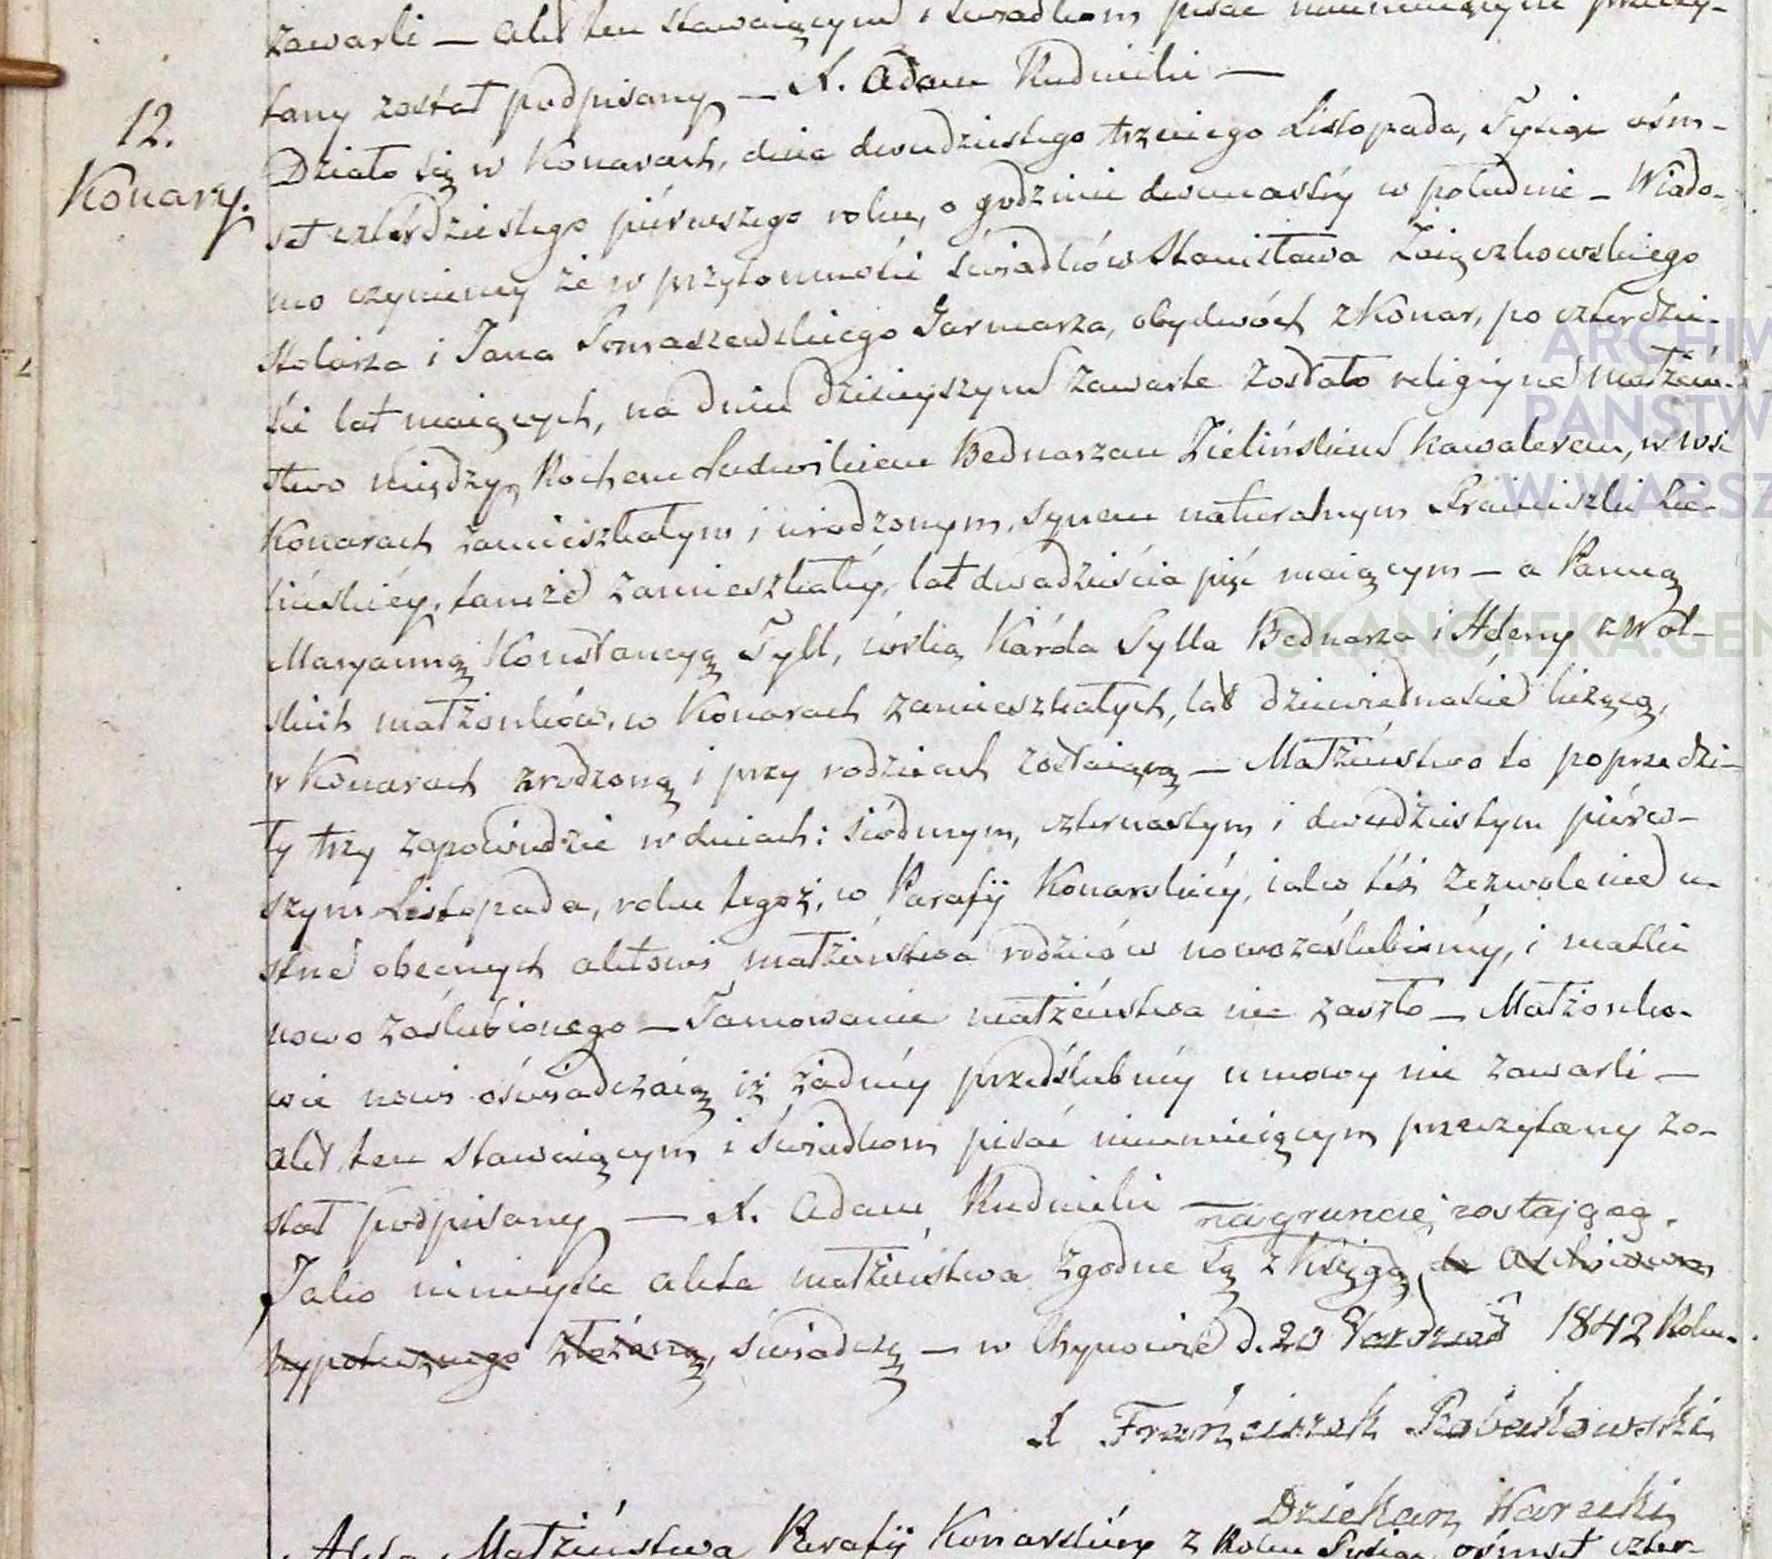 zawarli — Akt ten stawaiącym i świadkom pisać nieumieiącym przeczy-
tany został podpisany — X. Adam Rudnicki —
12.
Konary.
Działo się w Konarach, dnia dwudziestego trzeciego Listopada, Tysiąc ośm-
set czterdziestego piérwszego roku, o godzinie dwunastéy w południe — Wiado-
mo czyniemy że w przytomności świadków Stanisława Zaięczkowskiego
Stolarza i Jana Tomaszewskiego Garncarza, obydwóch z Konar, po czterdzie-
ści lat maiących, na dniu dzisieyszym zawarte zostało religiyne małżeń-
stwo między Rochem Ludwikiem Bednarzem Zielińskim kawalerem, w wsi
Konarach zamieszkałym i urodzonym, synem naturalnym Franciszki Zie-
lińskiéy, tamże zamieszkałéy, lat dwadzieścia pięć maiącym — a Panną
Maryanną Konstancyą Tyll, córką Karóla Tylla Bednarza i Heleny z Wol-
skich małżonków, w Konarach zamieszkałych, lat dziewiętnaście liczącą,
w Konarach zrodzoną i przy rodzicach zostaiącą — Małżeństwo to poprzedzi-
ły trzy zapowiedzie w dniach: siódmym, czternastym i dwudziestym piérw-
szym Listopada, roku tegoż, w Parafij Konarskiéy, iako téż zezwolenie u-
stne obecnych aktowi małżeństwa rodziców nowozaślubionéy, i matki
nowo zaślubionego — Tamowanie małżeństwa nie zaszło — Małżonko-
wie nowi oświadczaią iż żadnéy przedślubnéy umowy nie zawarli —
Akt ten stawaiącym i świadkom pisać nieumieiącym przeczytany zo-
stał podpisany — X. Adam Rudnicki
na gruncie zostającą.
Jako ninieysze akta małżeństwa zgodne są z księgą do Archiwum
hypotecznego złożoną, świadczę — w Chynowie d. 20 1842 Roku.
X Franciszek
Dziekan Warecki
Akta Małżeństwa Parafij Konarskiéy z Roku Tysiąc ośmset czter-